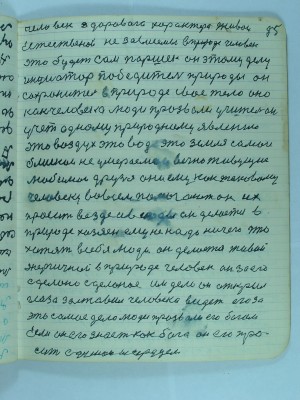 человек здорового характера живой 85
естественой не зависемой в природе человек
это будет сам паршек он этому делу
инциатор победител природы он
сохранител в природе свое тело его
как человека люди прозвали учител он
учет одному природному явлению
это воздух это вода это земля самои
близкои не умераемои вечно живущие
любимои друзя они ему как таковому
человеку во всем помогают он их
просит везде
природе хозяен ему не надо ничего это
хотят всебя люди он делается живой
энергичной в природе человек он за его
сделано сделоное им дело он открыл
глаза заставил человека видет его за
это самое дело люди прозвали его богом
если он его знает как бога он его про-
сит с душой и сердцем